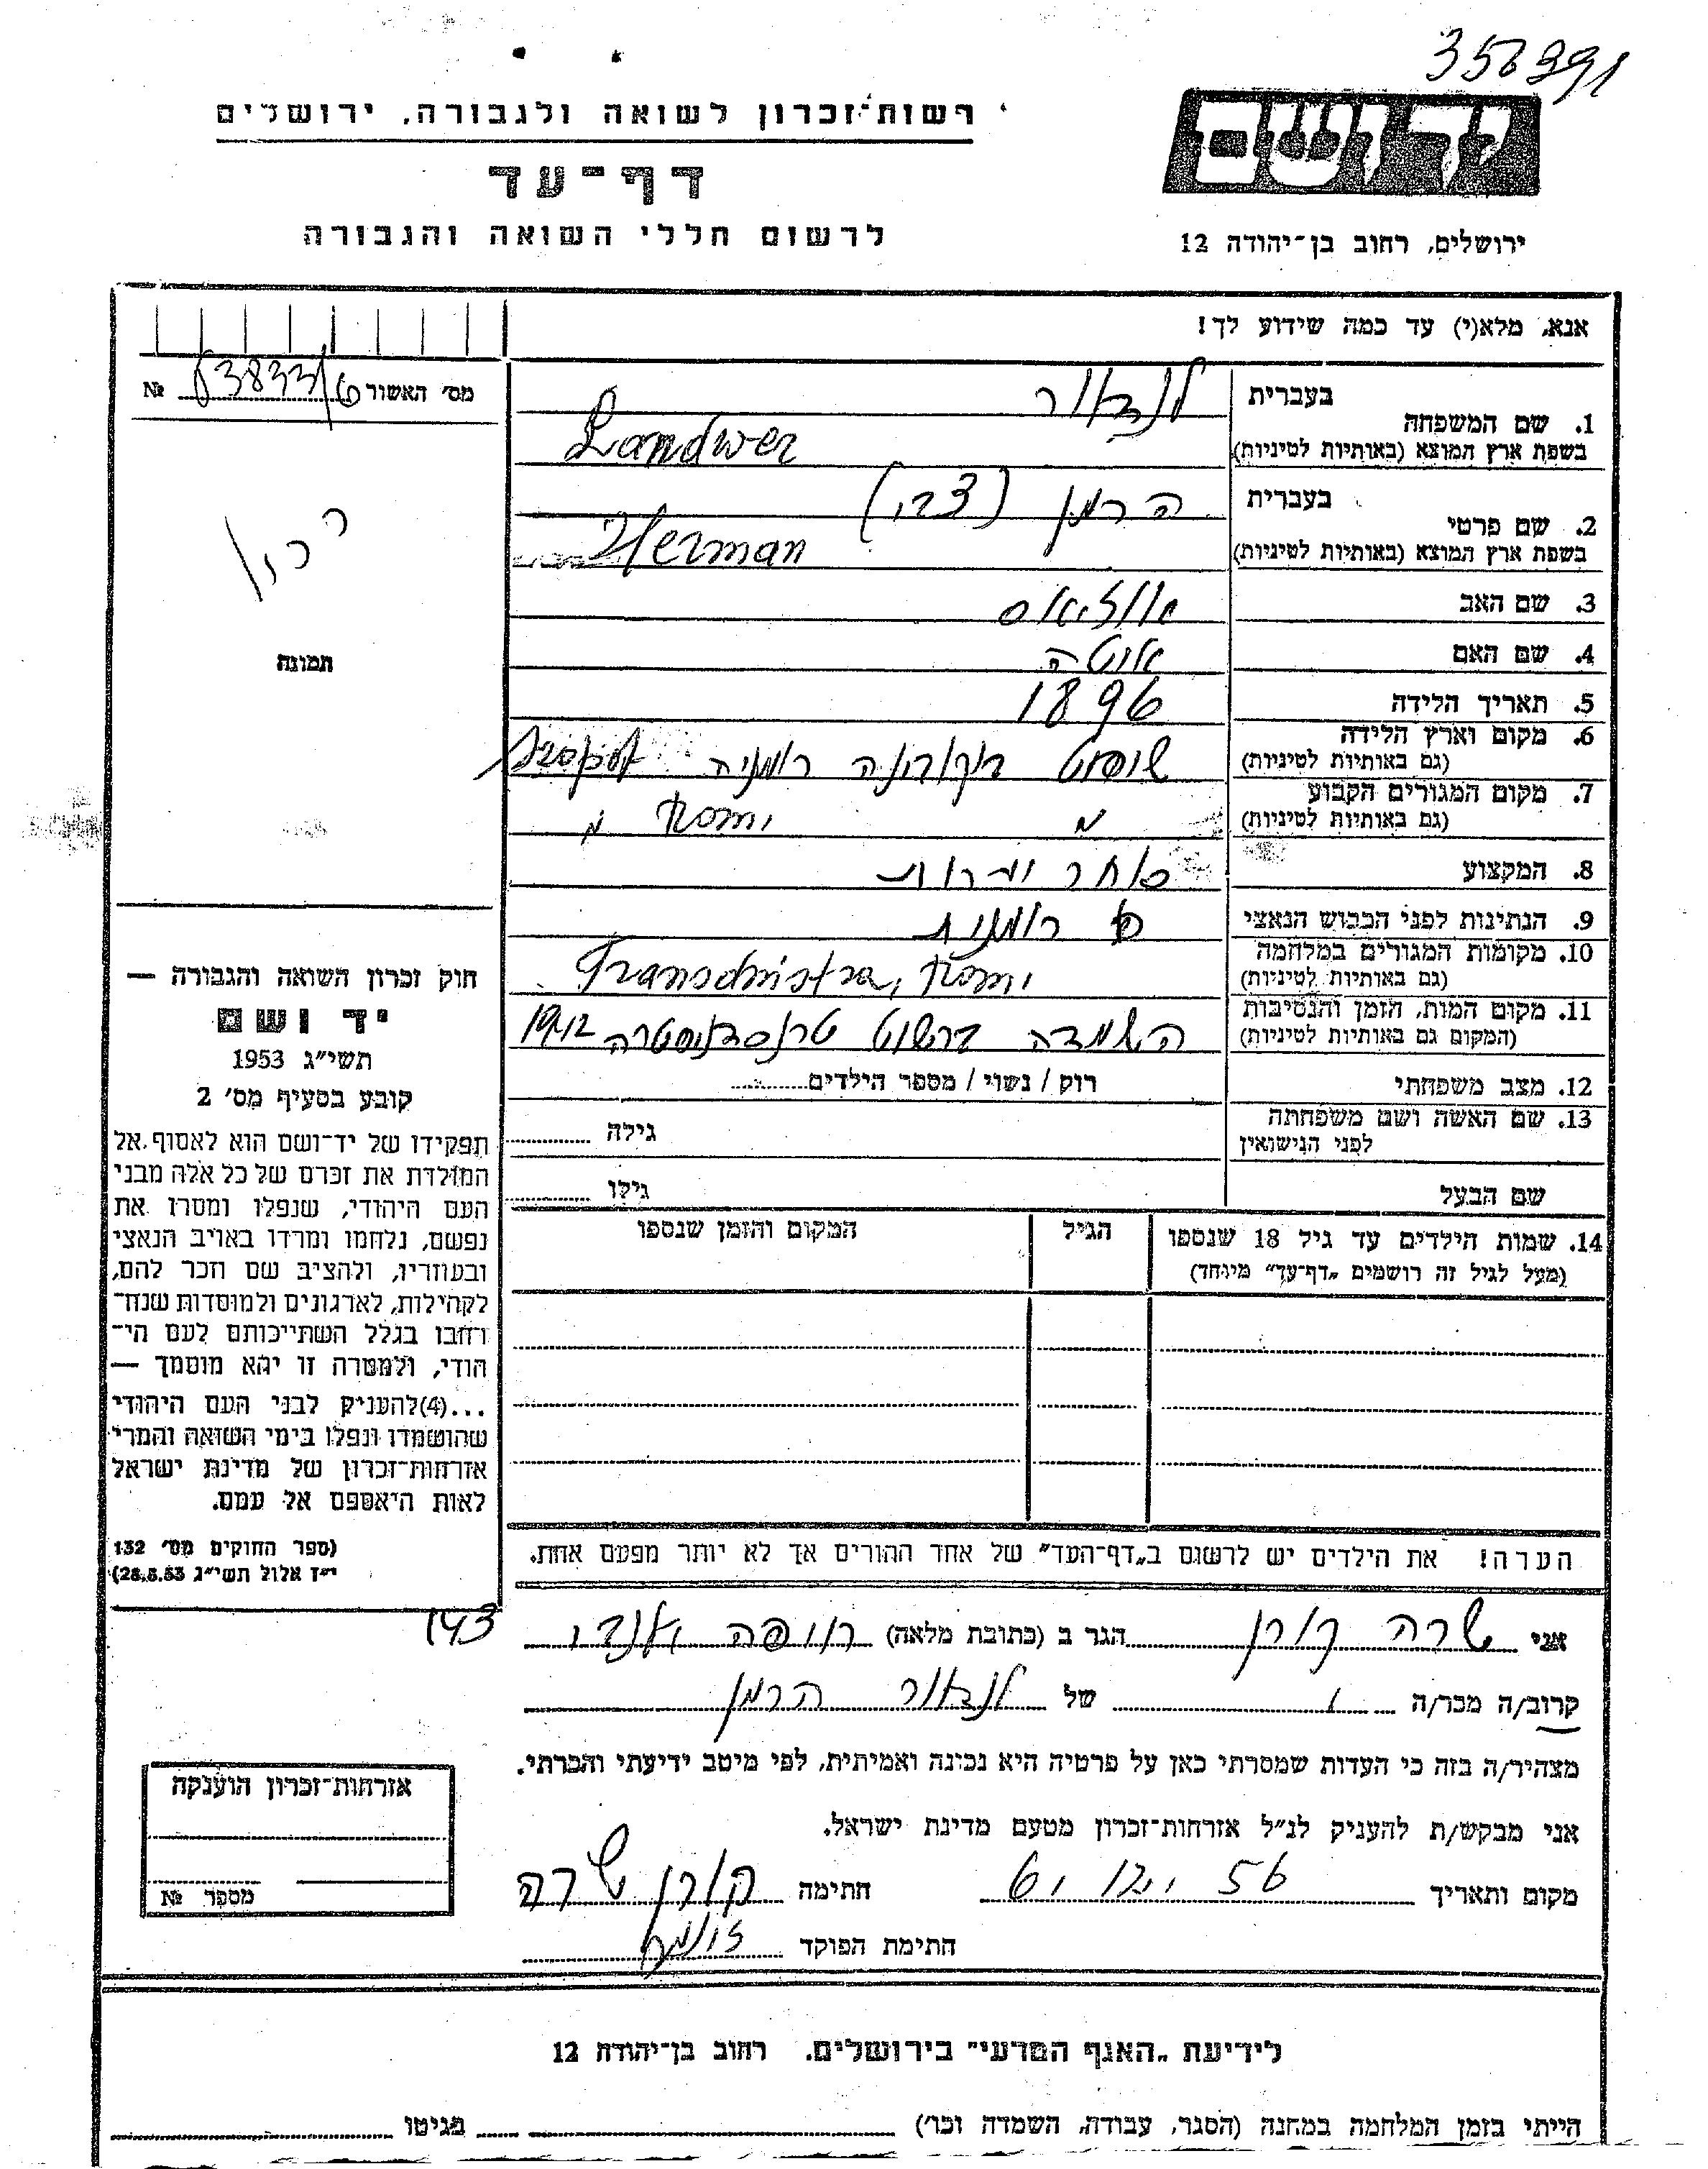 358391
רשות־זכרון לשואה ולגבורה, ירושלים
יד ושם
דף־עד
לרשום חללי השואה והגבורה
ירושלים, רחוב בן־יהודה 12
אנא, מלא(י) עד כמה שידוע לך!
מס׳ האשור №
בעברית
1. שם המשפחה
בשפת ארץ המוצא (באותיות לטיניות) Landwer
בעברית הרמן (צבי)
2. שם פרטי
בשפת ארץ המוצא (באותיות לטיניות) Herman
3. שם האב
4. שם האם
5. תאריך הלידה 1896
6. מקום וארץ הלידה
(גם באותיות לטיניות)
7. מקום המגורים הקבוע
(גם באותיות לטיניות)
8. המקצוע סוחר
9. הנתינות לפני הכבוש הנאצי רומנית
10. מקומות המגורים במלחמה
(גם באותיות לטיניות) Transdnistra, Rom,
11. מקום המות, הזמן והנסיבות
(המקום גם באותיות לטיניות) השמדה טרנסדניסטריה 1942
12. מצב משפחתי רוק / נשוי / מספר הילדים
13. שם האשה ושם משפחתה
לפני הנישואין גילה
שם הבעל גילו
14. שמות הילדים עד גיל 18 שנספו הגיל המקום והזמן שנספו
(מעל לגיל זה רושמים „דף־עד” מיוחד)
הערה! את הילדים יש לרשום ב„דף־העד” של אחד ההורים אך לא יותר מפעם אחת.
תמונה
חוק זכרון השואה והגבורה —
יד ושם
תשי״ג 1953
קובע בסעיף מס׳ 2
תפקידו של יד־ושם הוא לאסוף אל
המולדת את זכרם של כל אלה מבני
העם היהודי, שנפלו ומסרו את
נפשם, נלחמו ומרדו באויב הנאצי
ובעוזריו, ולהציב שם וזכר להם,
לקהילות, לארגונים ולמוסדות שנח־
רבו בגלל השתייכותם לעם הי־
הודי, ולמטרה זו יהא מוסמך —
...(4) להעניק לבני העם היהודי
שהושמדו ונפלו בימי השואה והמרי
אזרחות־זכרון של מדינת ישראל
לאות היאספם אל עמם.
(ספר החוקים מס׳ 132
י״ז אלול תשי״ג 28.8.53)
אני שרה קורן הגר ב (כתובת מלאה) חיפה 143
קרוב/ה מכר/ה של לנדאור הרמן
מצהיר/ה בזה כי העדות שמסרתי כאן על פרטיה היא נכונה ואמיתית, לפי מיטב ידיעתי והכרתי.
אני מבקש/ת להעניק לנ״ל אזרחות־זכרון מטעם מדינת ישראל.
מקום ותאריך חתימה קורן שרה
חתימת הפוקד
אזרחות־זכרון הוענקה
מספר №
לידיעת „האגף המדעי” בירושלים. רחוב בן־יהודה 12
הייתי בזמן המלחמה במחנה (הסגר, עבודה, השמדה וכו׳) בגיטו